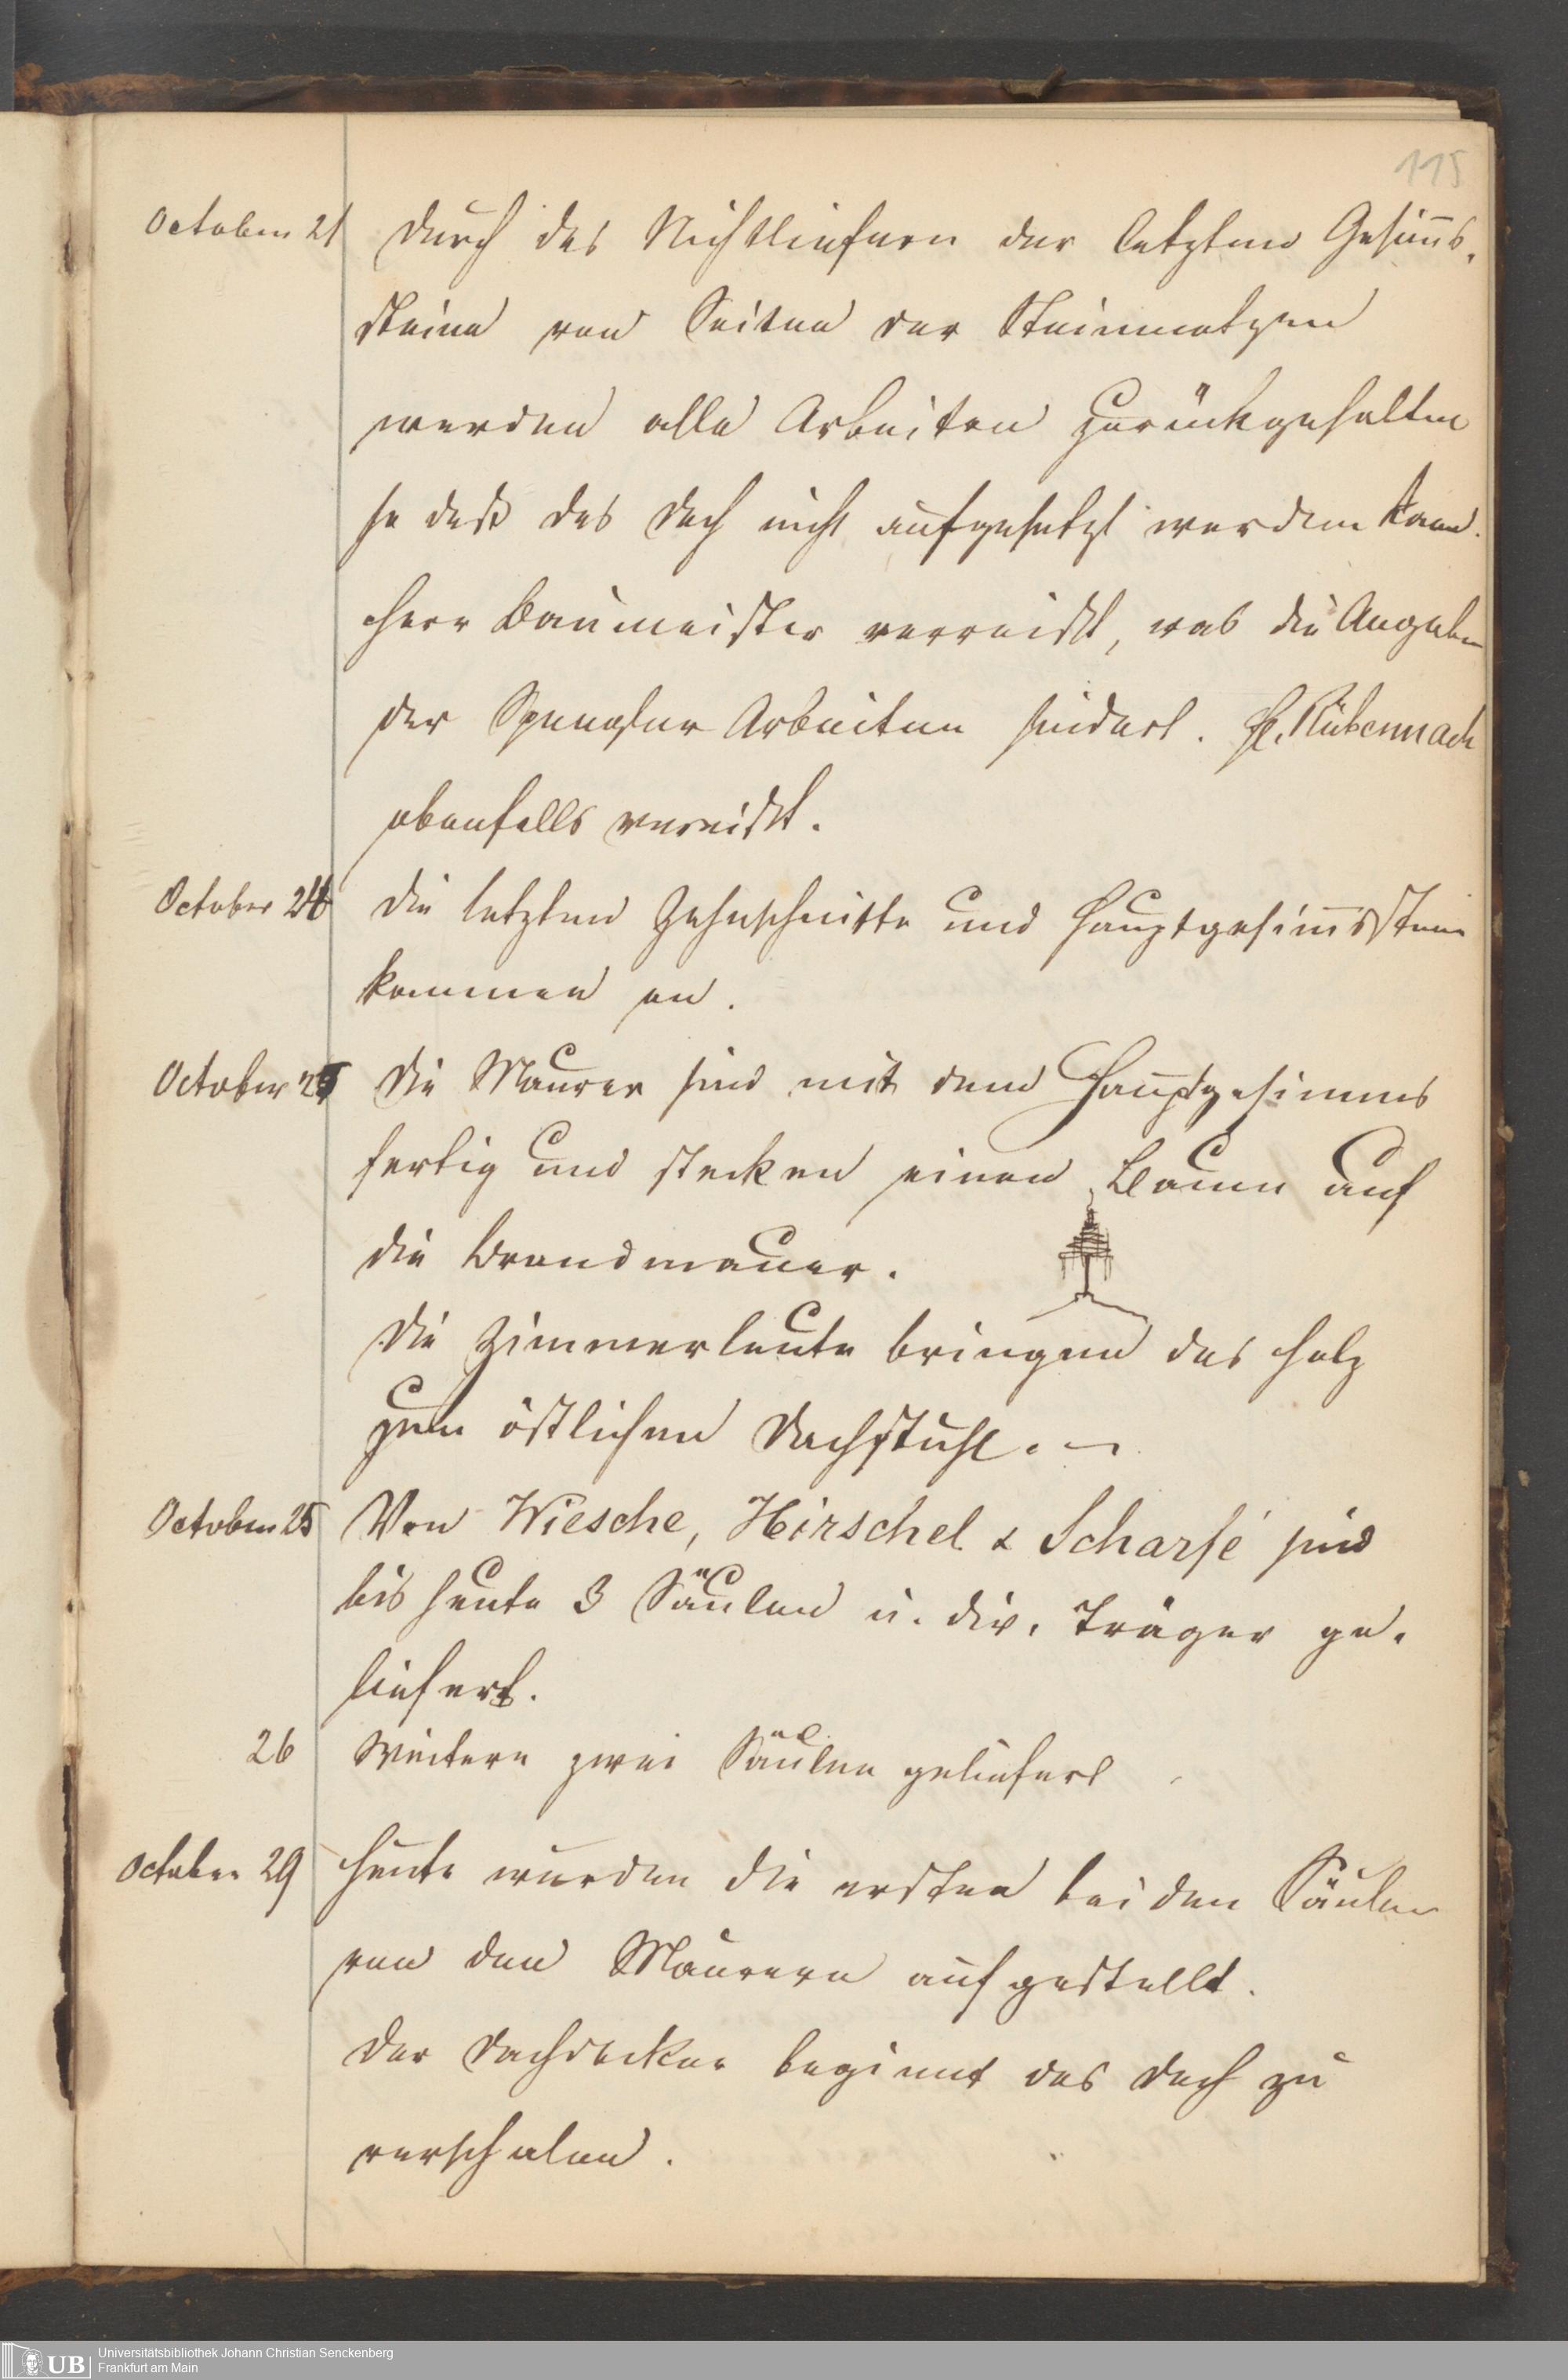 115
October 21 Durch das Nichtliefern der letzten Gesims,
steine von Seiten der Steinmetzen
werden alle Arbeiten zurückgehalten
so daß das Dach nicht aufgesetzt werden kann.
Herr Baumeister verreist, was die Angaben
der Spengler Arbeiten hindert. H. Rübennach
ebenfalls verreist.
October 24 Die letzten Zahnschnitte und Hauptgesimsstein
kommen an.
October 25 Die Maurer sind mit dem Hauptgesimms
fertig und stecken einen Baum auf
die Brandmauer.
Die Zimmerleute bringen das Holz
zum östlichen Dachstuhl. –
October 25 Von Wiesche, Hirschel & Scharfé sind
bis heute 3 Säulen u. div. Träger ge.
liefert.
26 Weitere zwei Säulen geliefert
October 29 Heute wurden die ersten beiden Säulen
von den Maurern aufgestellt.
Der Dachdecker beginnt das Dach zu
verschalen.
UB Universitätsbibliothek Johann Christian Senckenberg
Frankfurt am Main